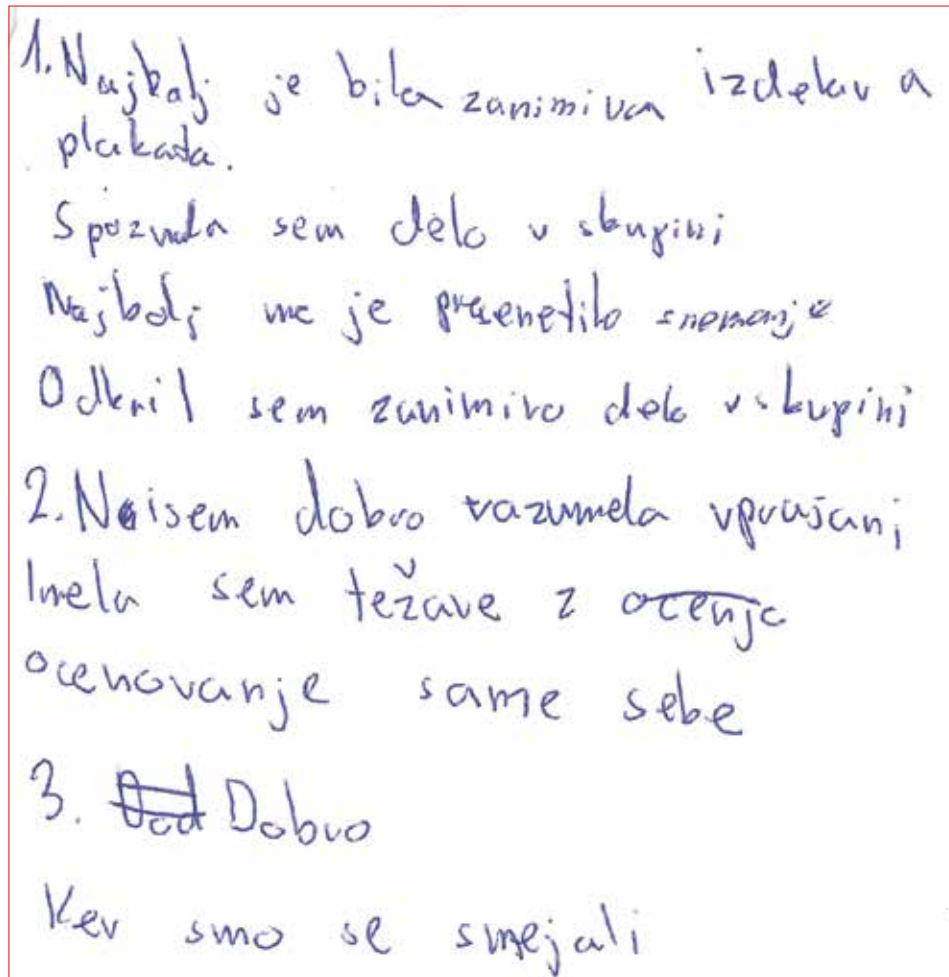 1. Najbolj je bila zanimiva izdelava
plakata.
Spoznala sem delo v skupini
Najbolj me je presenetilo snemanje
Odkril sem zanimivo delo v skupini
2. Nisem dobro razumela vprašanj
Imela sem težave z ocenje
ocenovanje same sebe
3. Dod Dobro
Ker smo se smejali